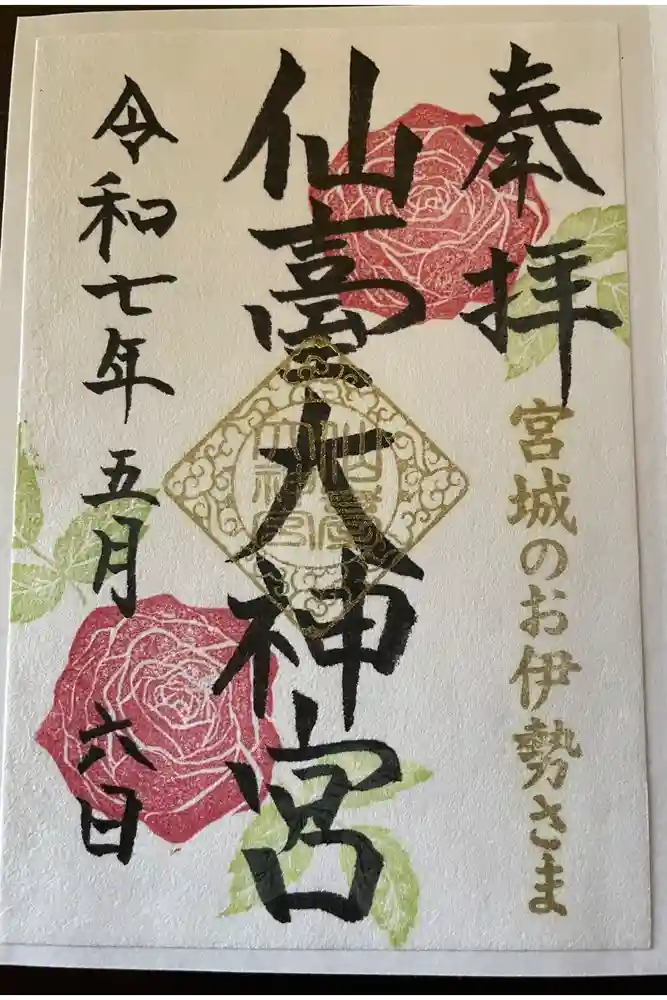 奉拝
宮城のお伊勢さま
仙臺大神宮
仙臺大神宮
令和七年五月六日